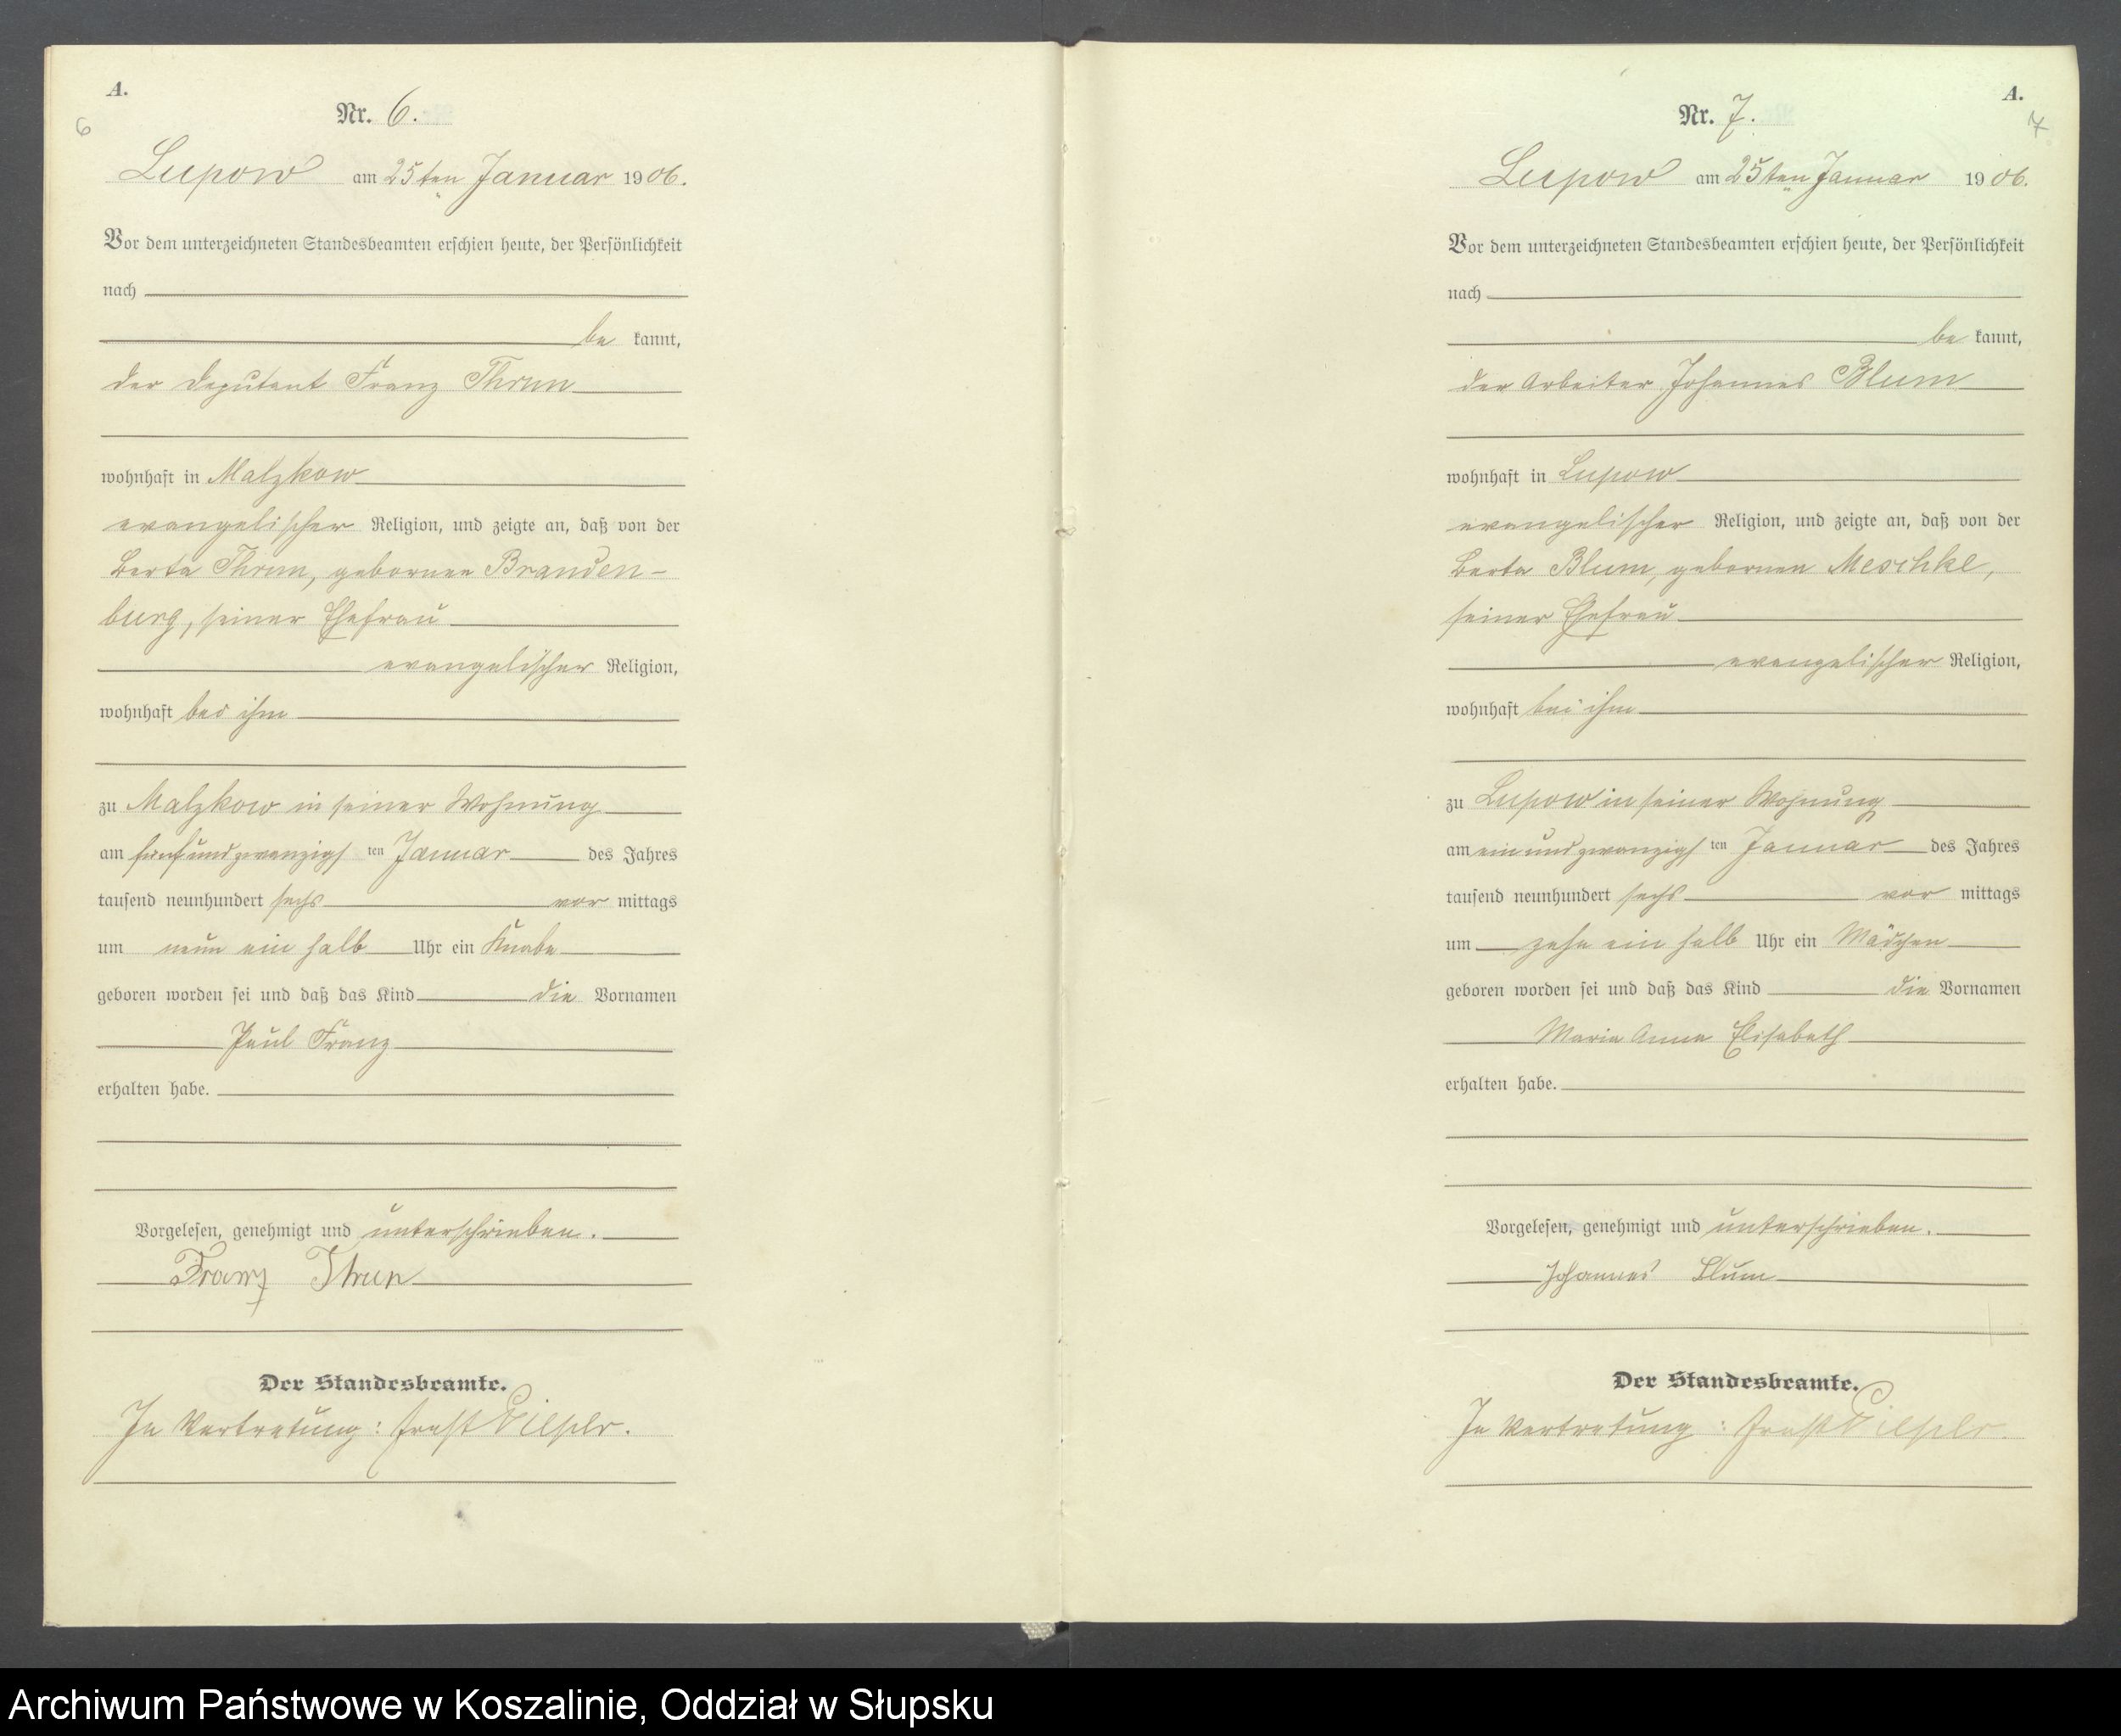 A.
6
Nr. 6.
Lupow am 25ten Januar 1906.
Vor dem unterzeichneten Standesbeamten erschien heute, der Persönlichkeit
nach
be kannt,
der Deputant Franz Thrun
wohnhaft in Malzkow
evangelischer Religion, und zeigte an, daß von der
Berta Thrun, geborenen Branden-
burg, seiner Ehefrau
evangelischer Religion,
wohnhaft bei ihm
zu Malzkow in seiner Wohnung
am fünfundzwanzigs ten Januar des Jahres
tausend neunhundert sechs vor mittags
um neun ein halb Uhr ein Knabe
geboren worden sei und daß das Kind die Vornamen
Paul Franz
erhalten habe.
Vorgelesen, genehmigt und unterschrieben.
Franz Thrun
Der Standesbeamte.
In Vertretung: Ernst
A.
7
Nr. 7.
Lupow am 25ten Januar 1906.
Vor dem unterzeichneten Standesbeamten erschien heute, der Persönlichkeit
nach
be kannt,
der Arbeiter Johannes Blum
wohnhaft in Lupow
evangelischer Religion, und zeigte an, daß von der
Berta Blum, geborenen Meschke,
seiner Ehefrau
evangelischer Religion,
wohnhaft bei ihm
zu Lupow in seiner Wohnung
am einundzwanzigs ten Januar des Jahres
tausend neunhundert sechs vor mittags
um zehn ein halb Uhr ein Mädchen
geboren worden sei und daß das Kind die Vornamen
Maria Anna Elisabeth
erhalten habe.
Vorgelesen, genehmigt und unterschrieben.
Johannes Blum
Der Standesbeamte.
In Vertretung: Ernst
Archiwum Państwowe w Koszalinie, Oddział w Słupsku